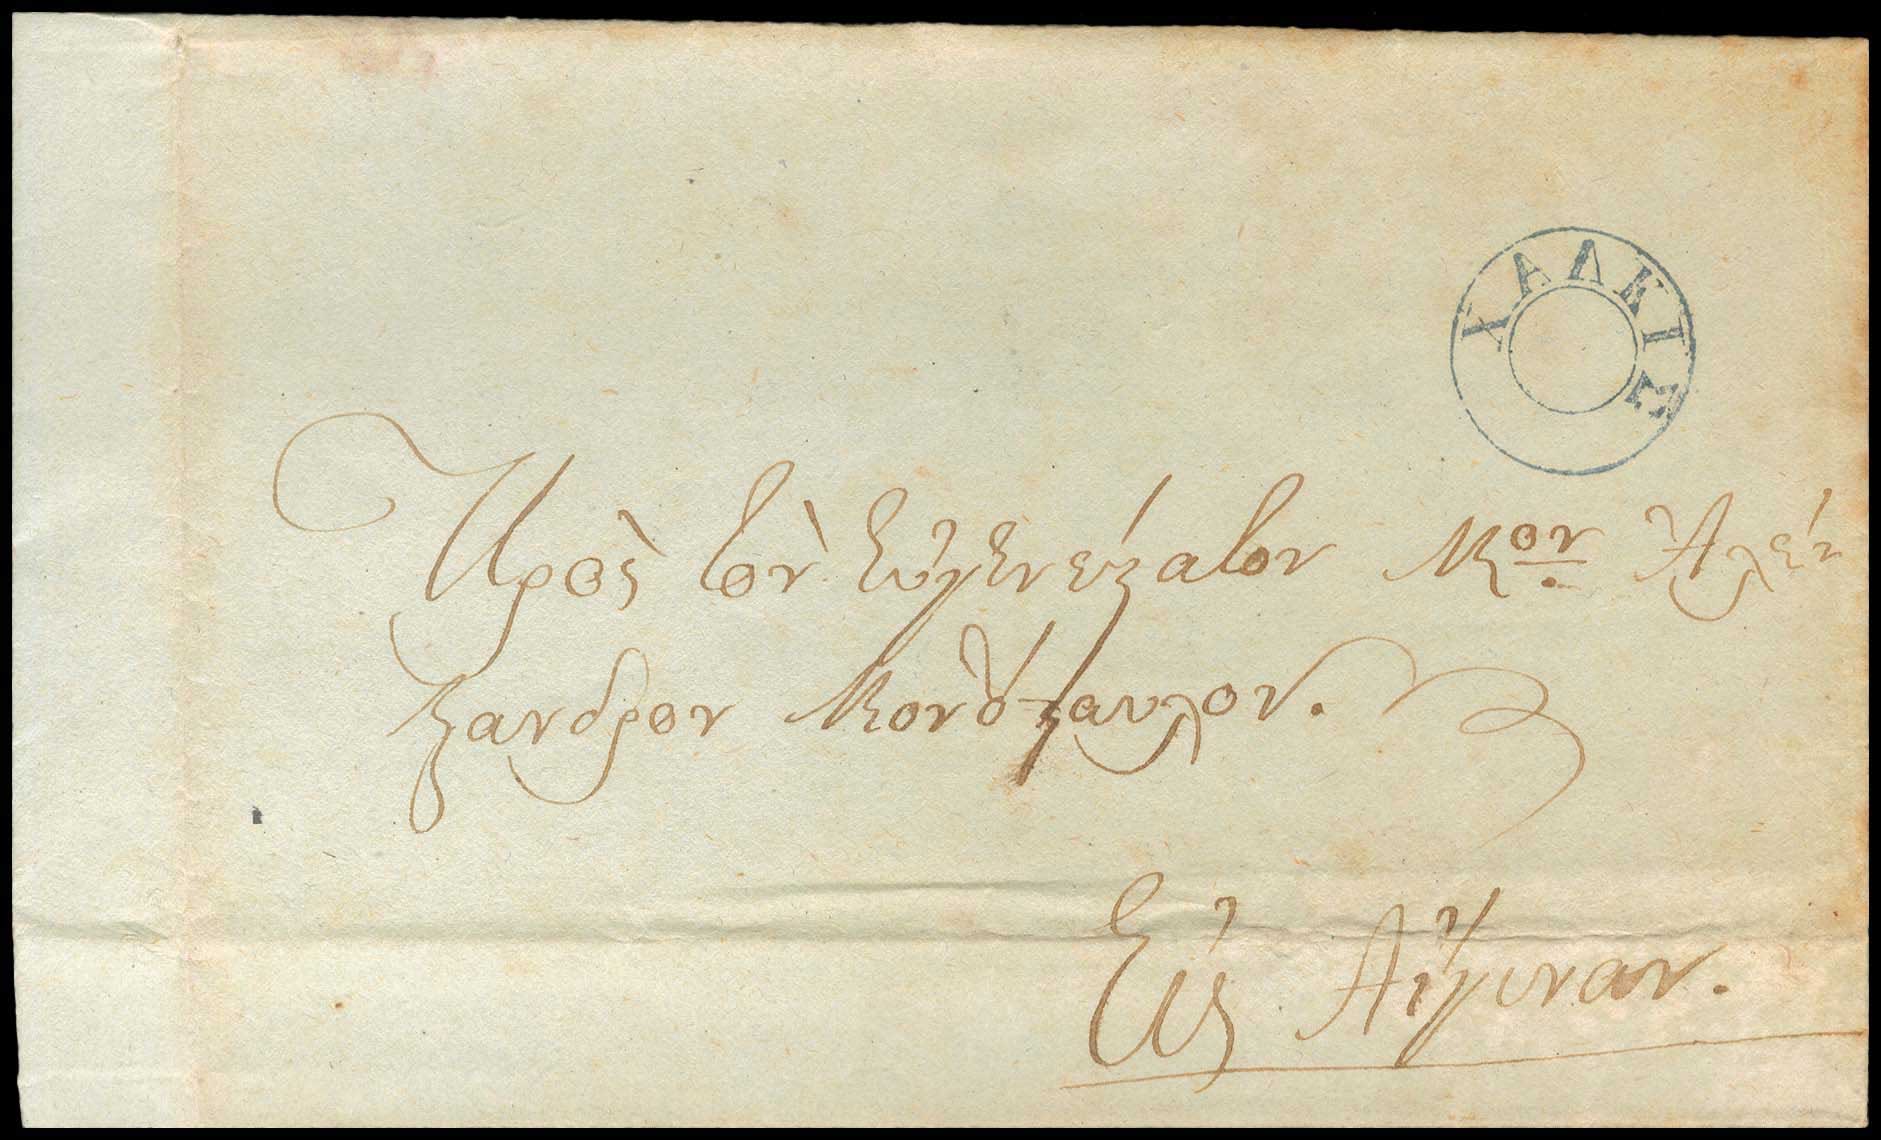 ΧΑΛΚΙΣ
Πρὸς τὸν Εὐγενέστατον Κον Ἀλέ
ξανδρον Κονόσταυλον.
Εἰς Αἴγιναν.